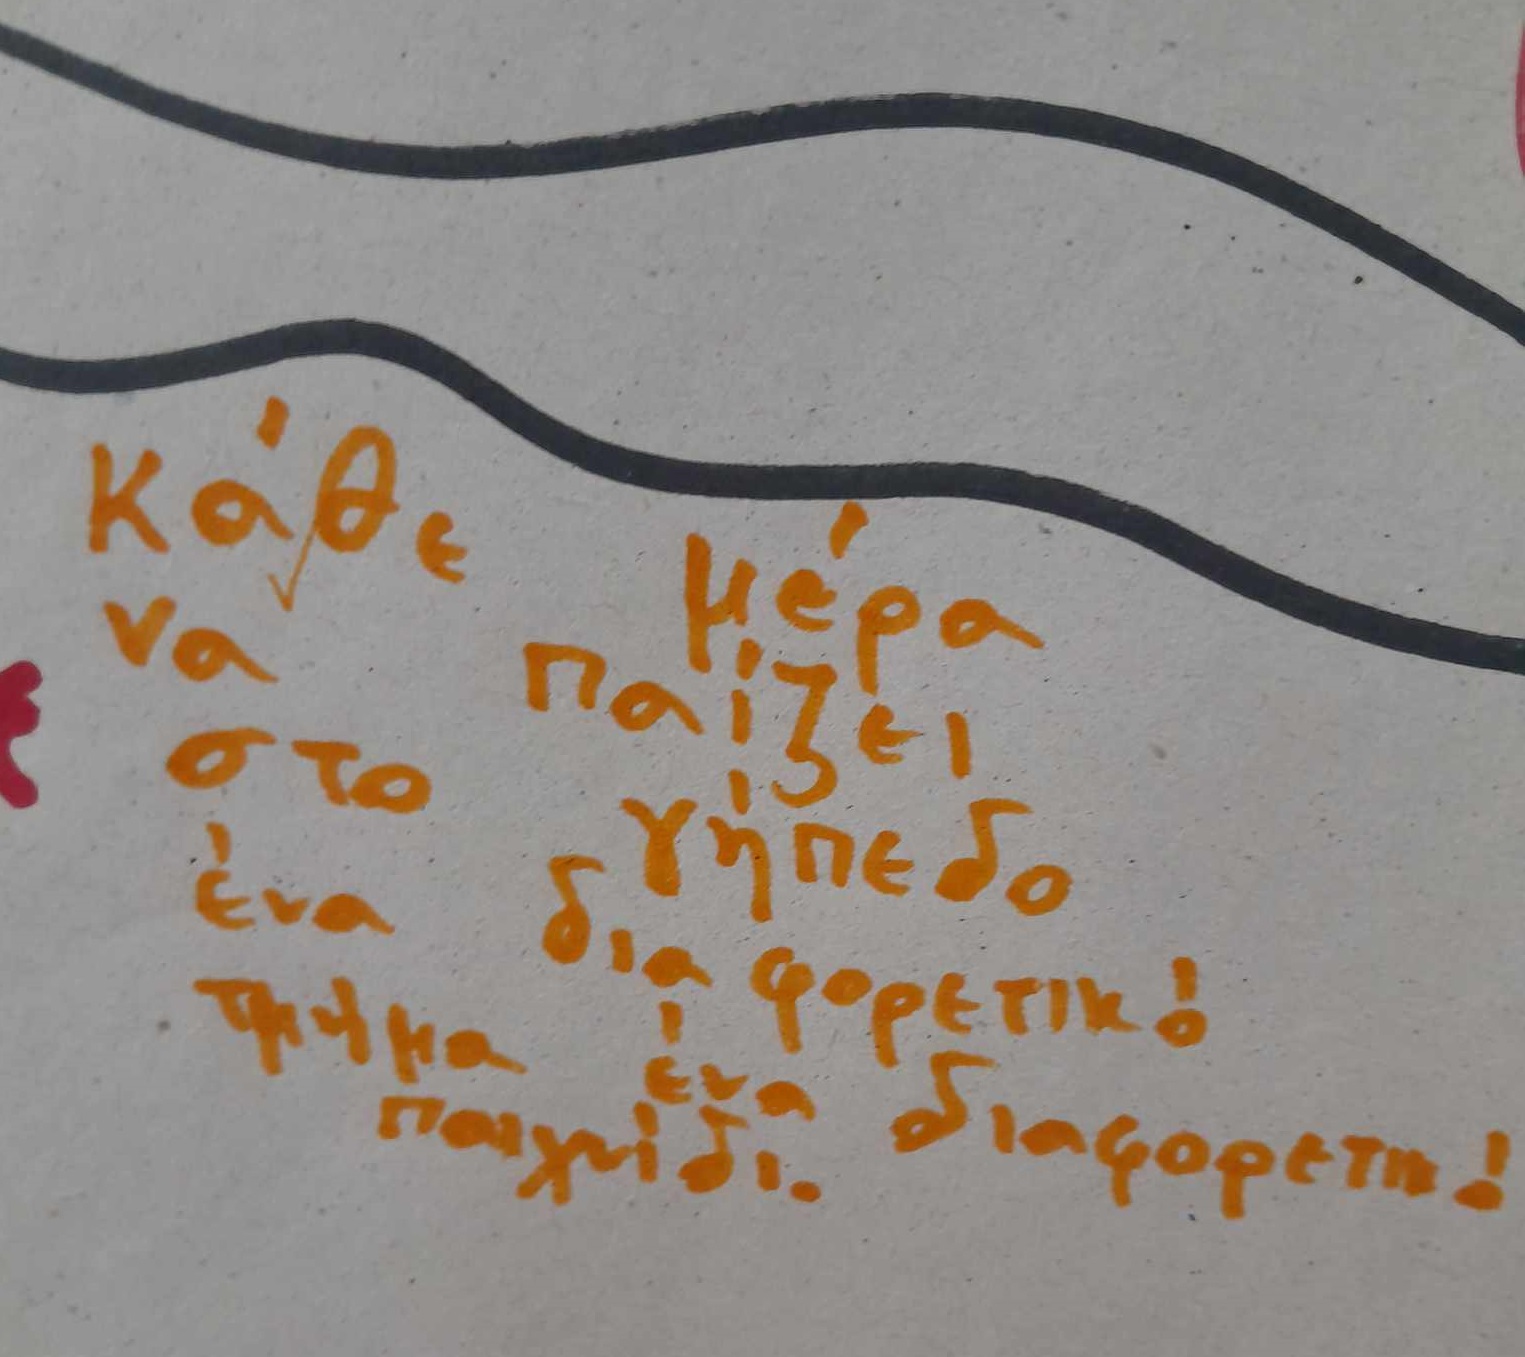 κάθε μέρα
να παίζει
στο γήπεδο
ένα διαφορετικό
τμήμα ένα διαφορετικό
παιχνίδι.